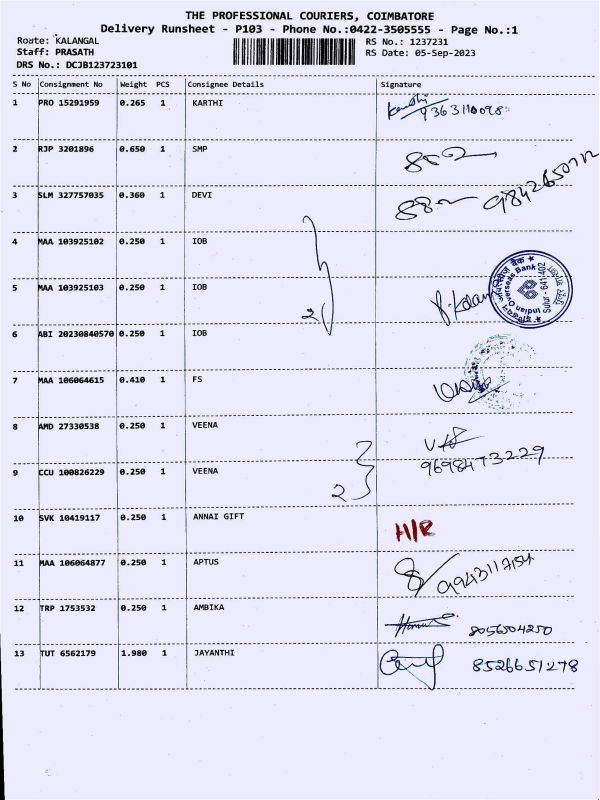 THE PROFESSIONAL COURIERS, COIMBATORE
Delivery Runsheet - P103 - Phone No.:0422-3505555 - Page No.:1
Route: KALANGAL RS No.: 1237231
Staff: PRASATH RS Date: 05-Sep-2023
DRS No.: DCJB123723101
S No Consignment No Weight PCS Consignee Details Signature
1 PRO 15291959 0.265 1 KARTHI
2 RJP 3201896 0.650 1 SMP
3 SLM 327757035 0.360 1 DEVI
4 MAA 103925102 0.250 1 IOB
5 MAA 103925103 0.250 1 IOB
2
Indian Overseas Bank
Sulur - 641 402
6 ABI 20230840570 0.250 1 IOB
7 MAA 106064615 0.410 1 FS
8 AMD 27330538 0.250 1 VEENA
9698473229
9 CCU 100826229 0.250 1 VEENA
2
10 SVK 10419117 0.250 1 ANNAI GIFT H/R
11 MAA 106064877 0.250 1 APTUS 9943117154
12 TRP 1753532 0.250 1 AMBIKA 8056504250
13 TUT 6562179 1.980 1 JAYANTHI 8526651278